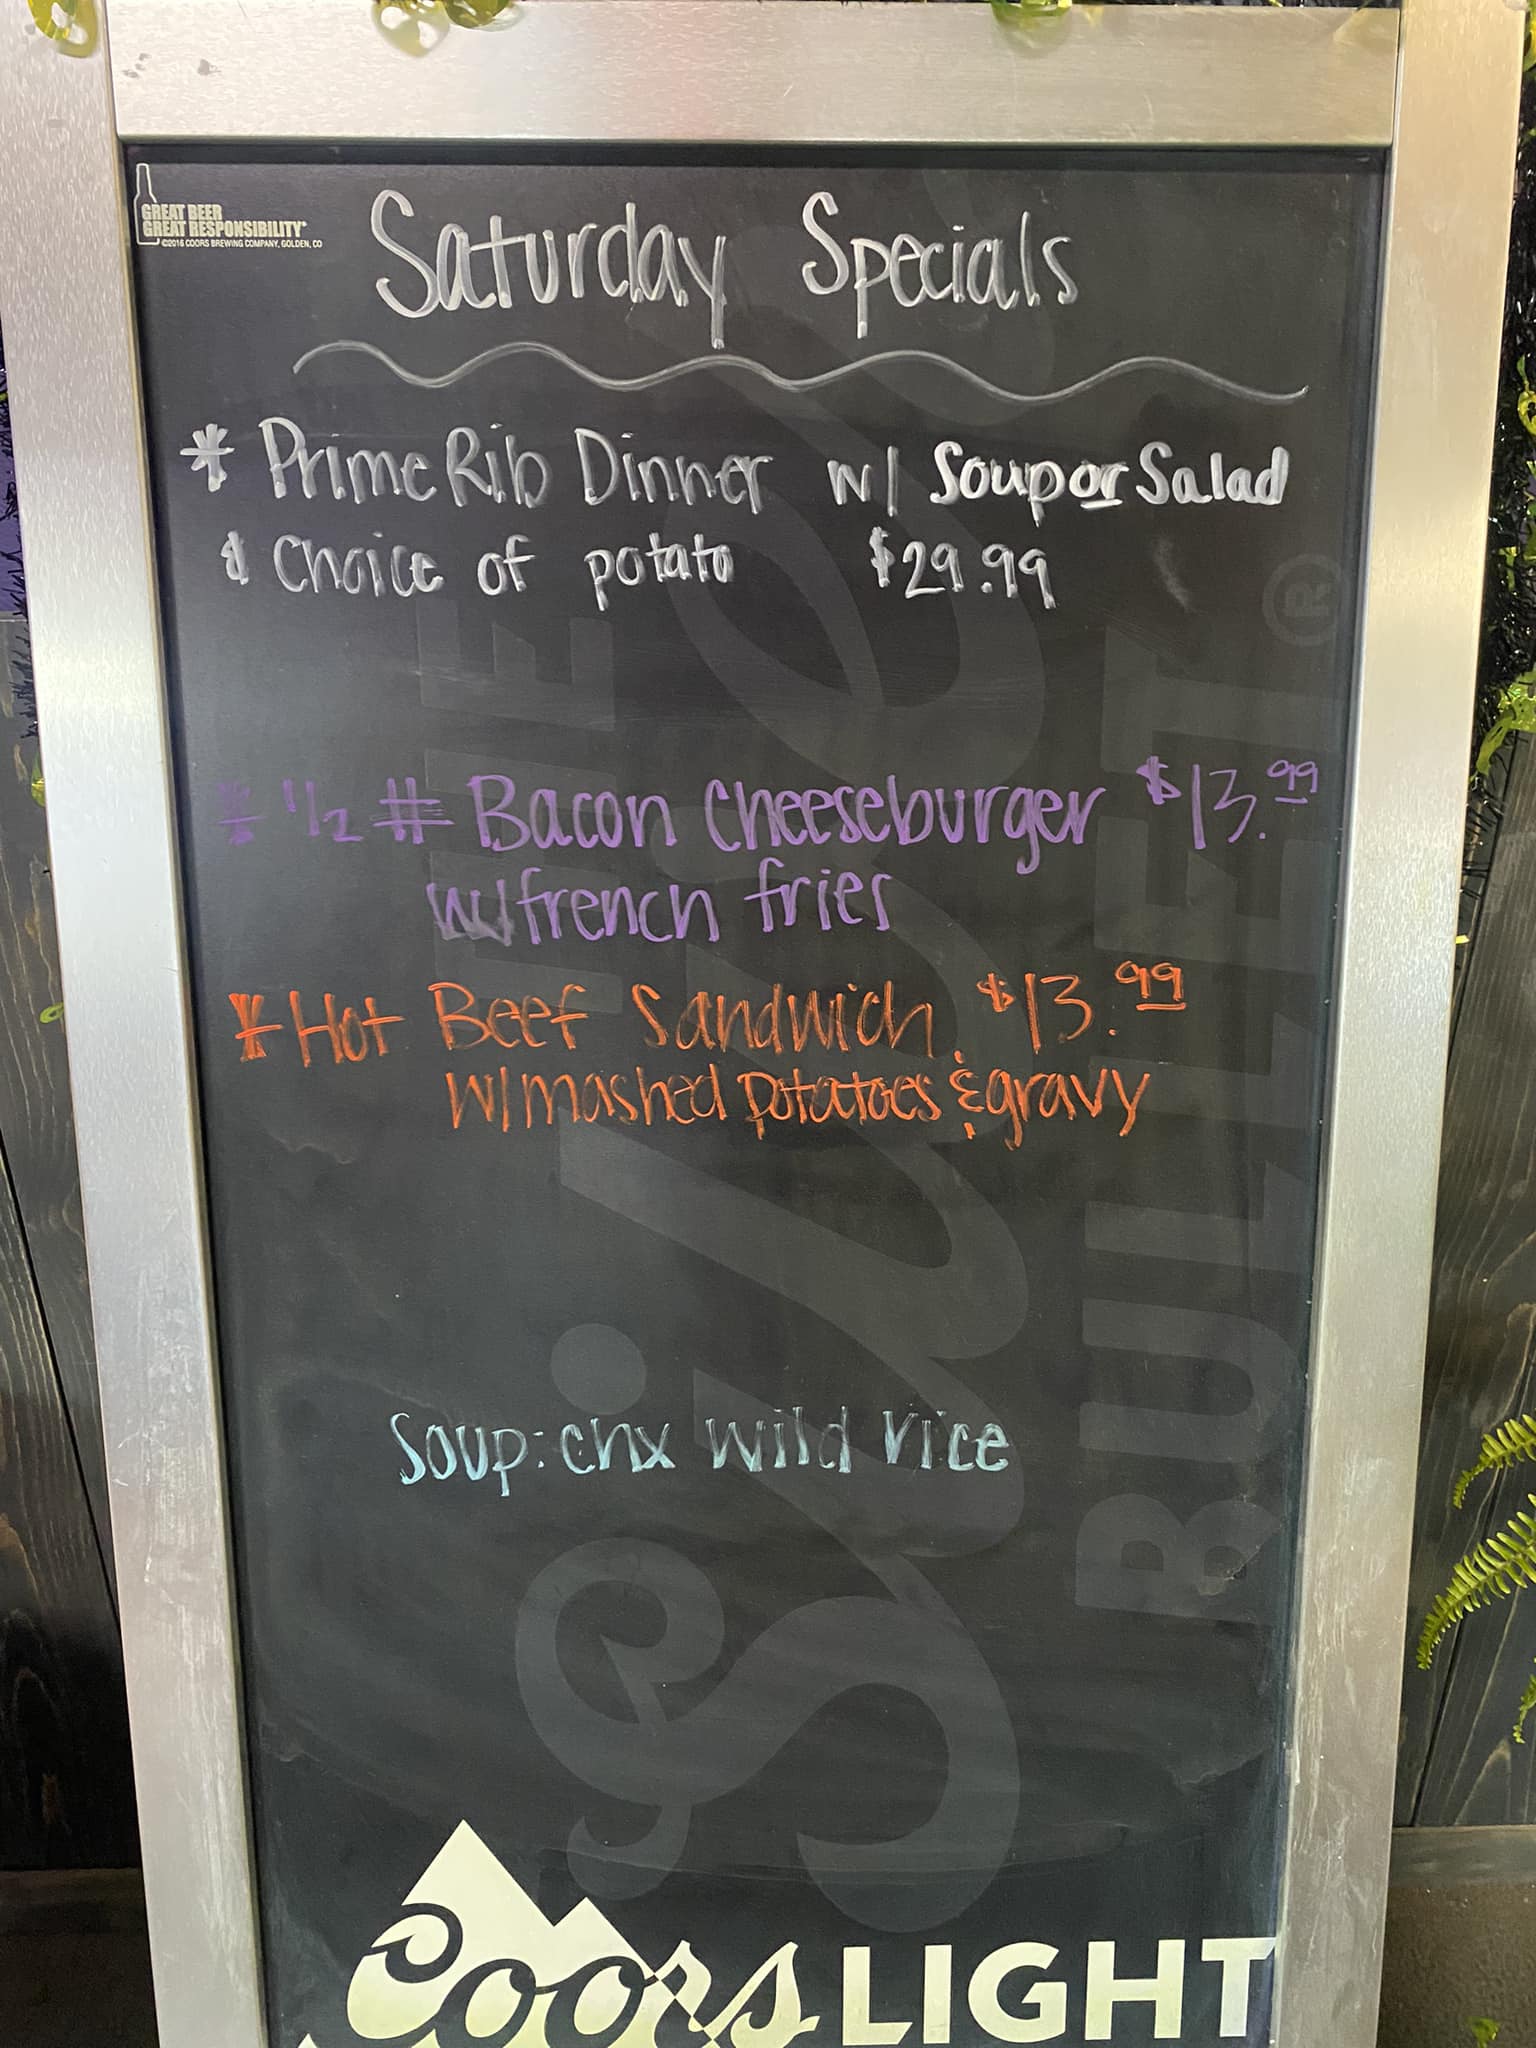 GREAT BEER
GREAT RESPONSIBILITY®
©2016 COORS BREWING COMPANY, GOLDEN, CO
Saturday Specials
* Prime Rib Dinner w/ Soup or Salad
& Choice of potato $29.99
* 1/2 # Bacon Cheeseburger $13.99
w/french fries
* Hot Beef Sandwich $13.99
w/mashed potatoes & gravy
Soup: chx wild rice
THE
Silver
BULLET®
Coors LIGHT